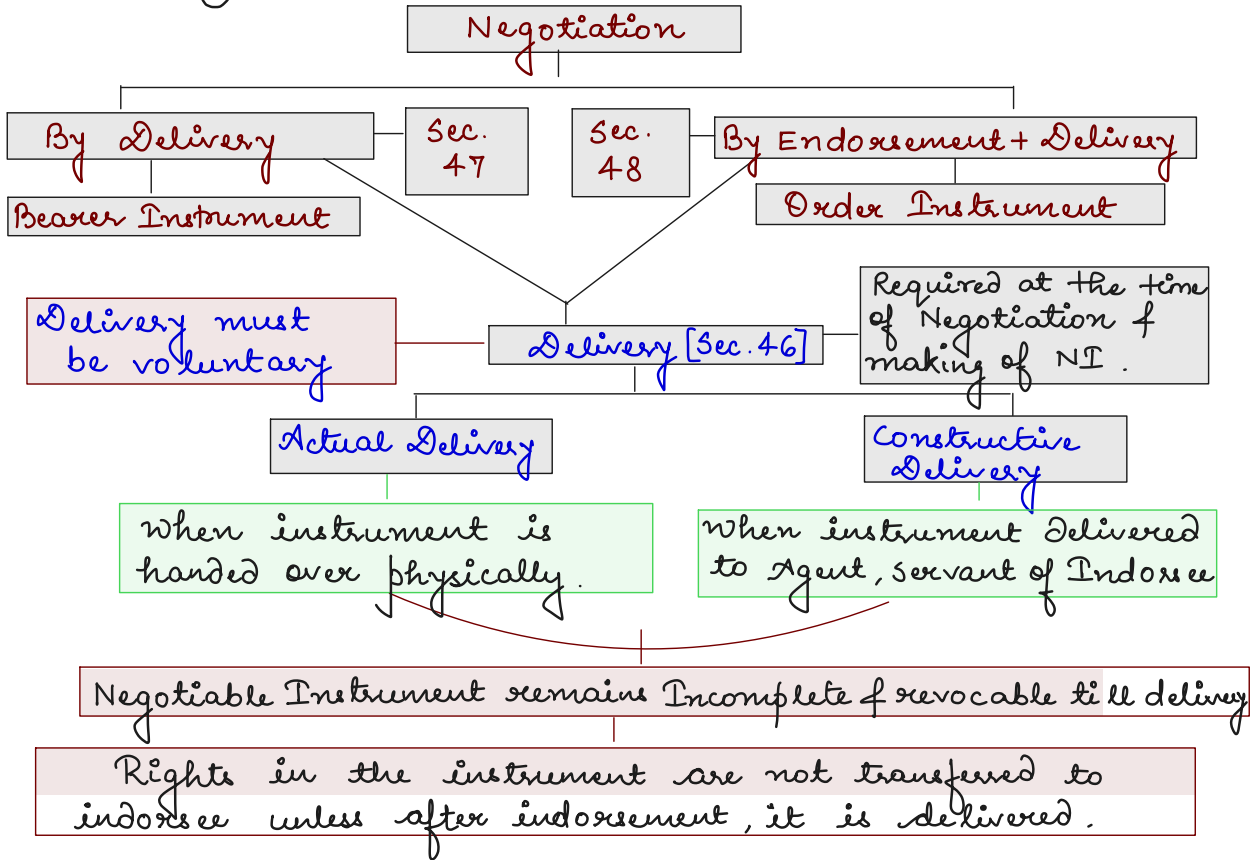 Negotiation
By Delivery
Sec.
47
Sec.
48
By Endorsement + Delivery
Bearer Instrument
Order Instrument
Delivery must
be voluntary
Delivery [Sec. 46]
Required at the time
of Negotiation &
making of NI.
Actual Delivery
Constructive
Delivery
When instrument is
handed over physically.
When instrument delivered
to Agent, servant of Indorsee
Negotiable Instrument remains Incomplete & revocable till delivery
Rights in the instrument are not transferred to
indorsee unless after indorsement, it is delivered.